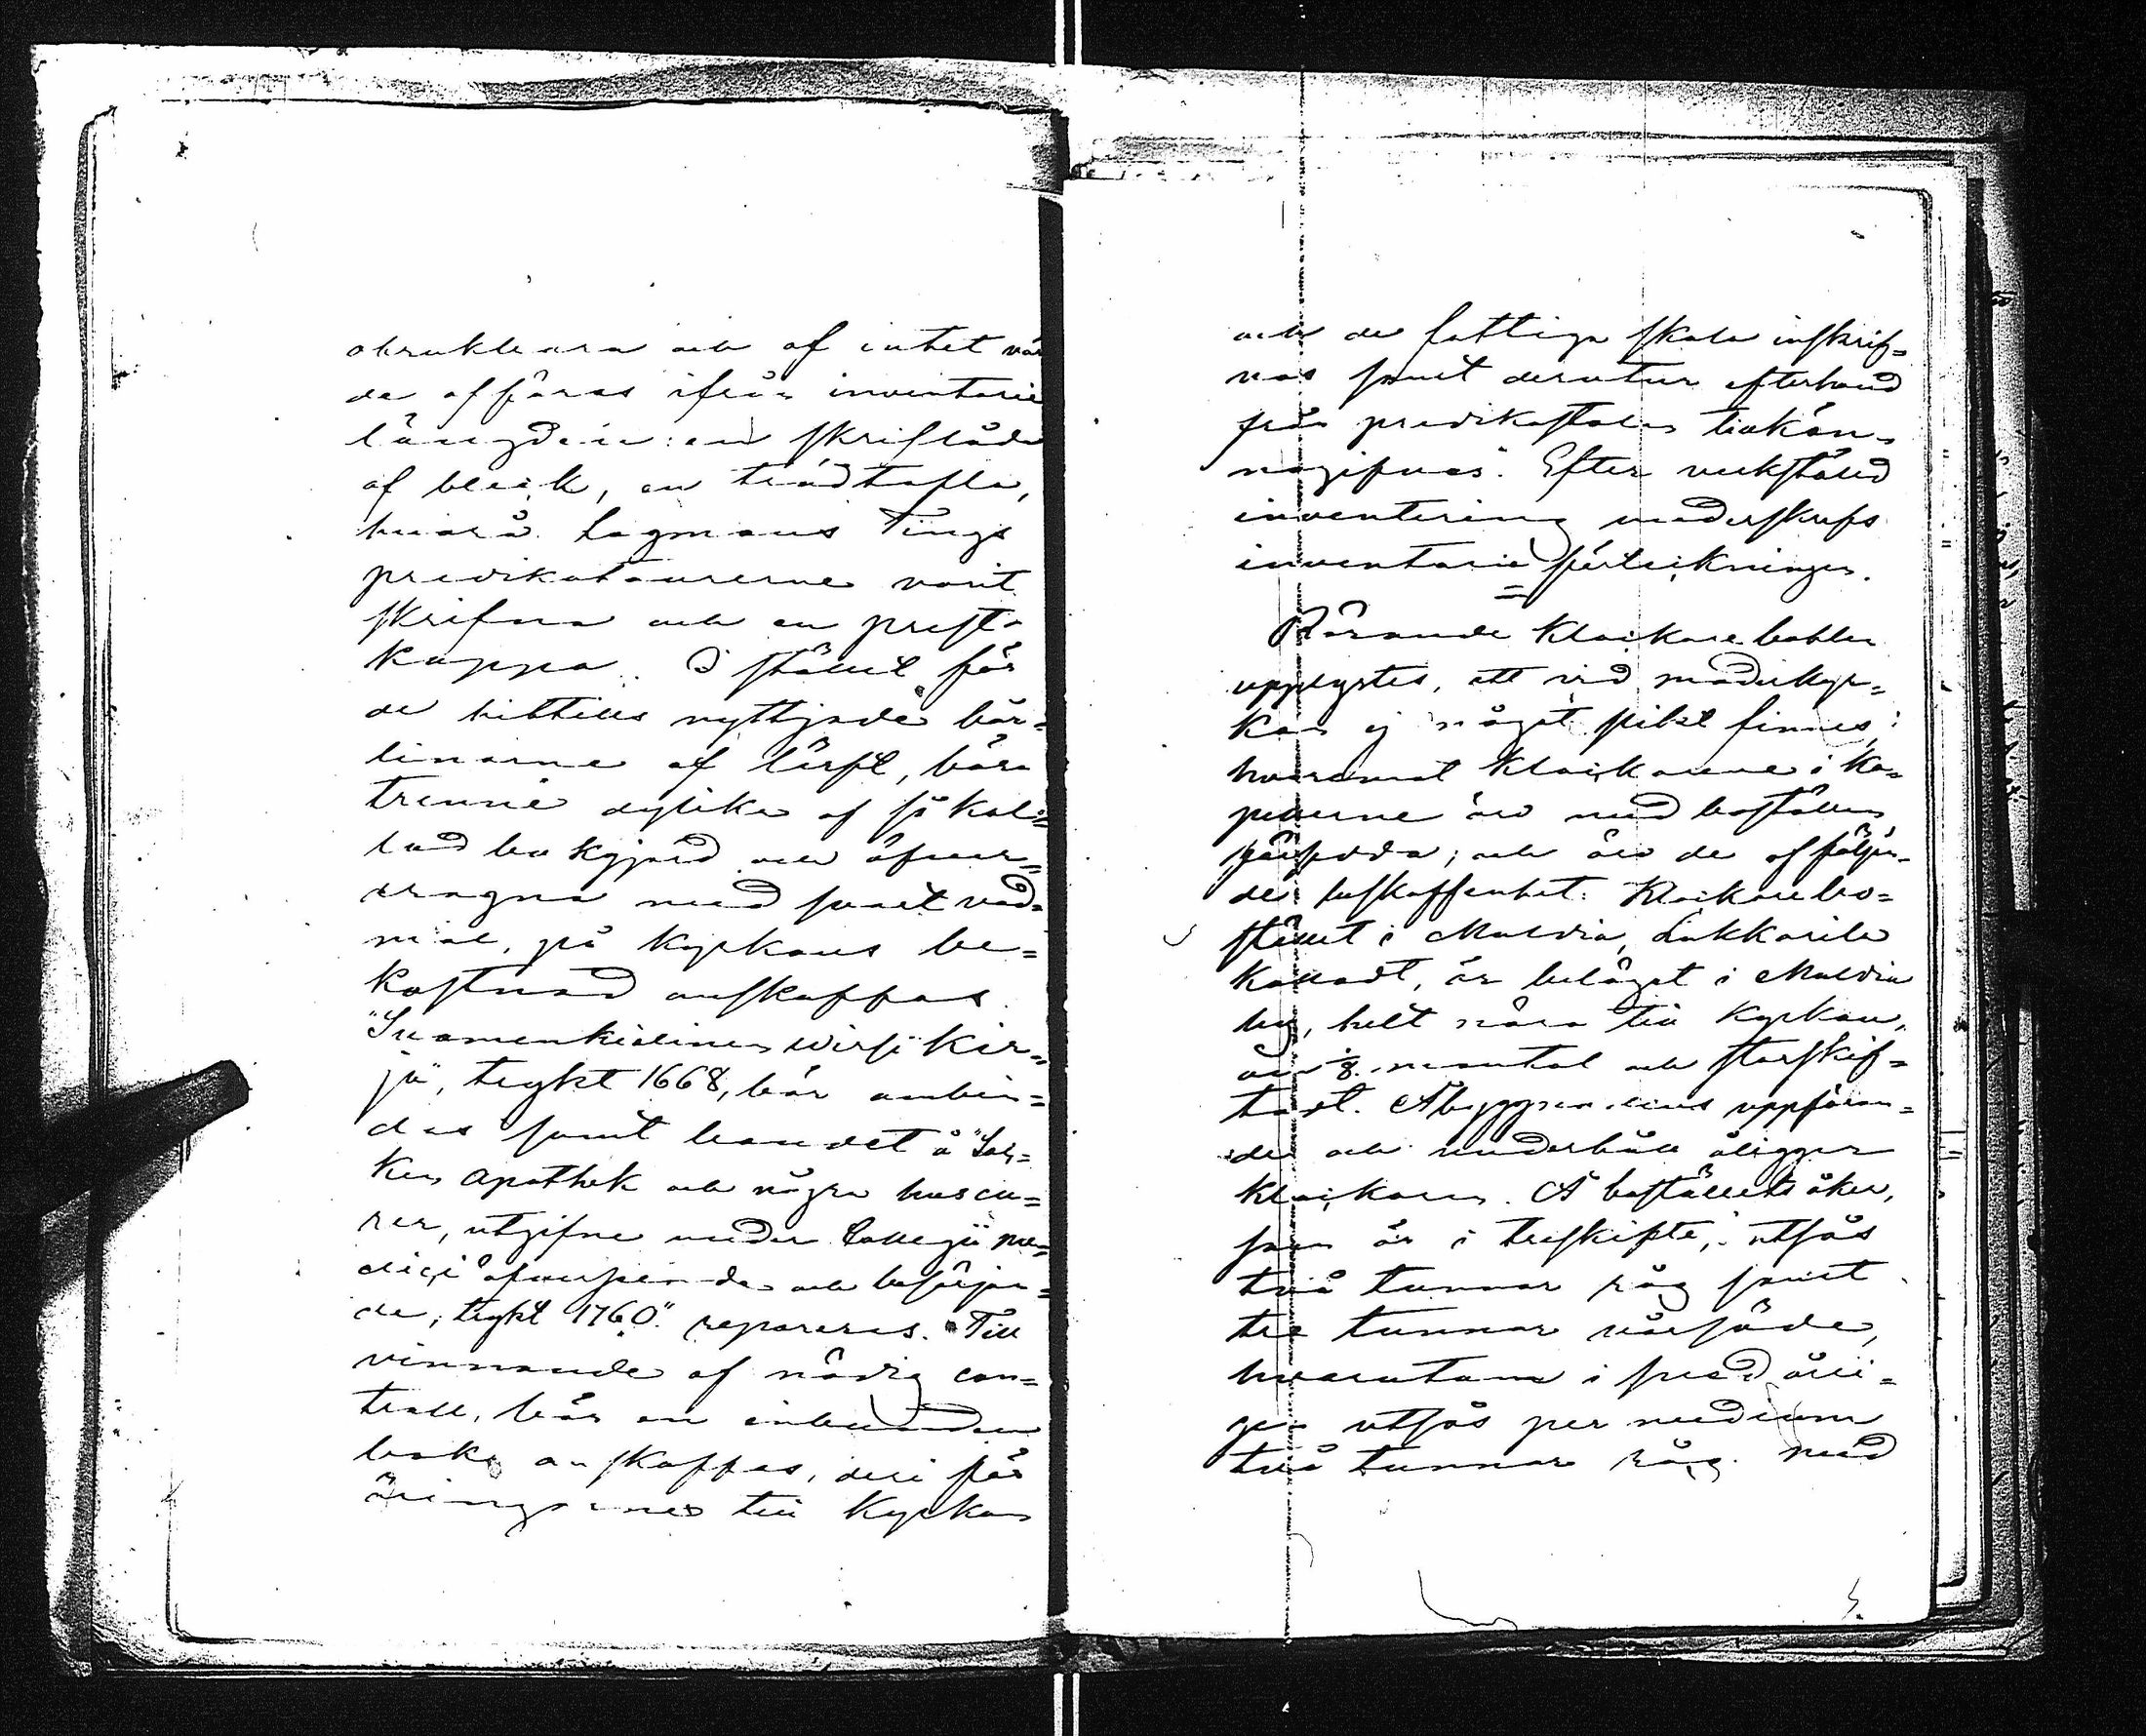 obrukbara och af intet vär
de afföras ifrån inventarie
längden: en skriflåda
af bleck, en trädtafla,
hvarå Lagmans Tings
predikatourerne varit
skrifna och en prest-
kappa. I stället för
de hittills nyttjade bår-
linorne af lärft, böra
trenne dylika af så kal=
lad bukgjord och öfver=
dragna med svart vad=
mal, på kyrkans be=
kostnad anskaffas.
"Suomenkielinen Wirsi kir=
ja", tryckt 1668, bör ombin=
das samt bandet å "Sal=
ken apothek och några huscu=
rer, utgifne under Collegii me=
dici öfverseende och besörjan=
de, tryckt 1760" repareras. Till
vinnande af nödig con=
troll, bör en inbunden
bok anskaffas, deri för
äringarnes till Kyrkan
och de fattiga skola inskrif=
vas samt derutur efterhand
från predikstolen tillkän=
nagifvas. Efter verkställd
inventering underskrefs
inventarie förteckningen.
Rörande Klockare bohlen
upplystes, att vid moderkyr=
kan ej något sådant finnes;
hvaremot klockarene i Ka=
pellerne äro med boställen
försedda; och äro de af följan=
de beskaffenhet: Klockarebo=
stället i Maldia, Lukkarila
kalladt, är beläget i Maldia
by, helt nära till kyrkan,
om 1/8 mantal och storskif=
tadt. Åbyggnadens uppföran=
de och underhåll åligger
klockaren. Å boställets åker,
som är i treskifte, utsås
två tunnor råg samt
tre tunnor vårsäde,
hvarutom i sved årli=
gen utsås per medium
två tunnor råg med